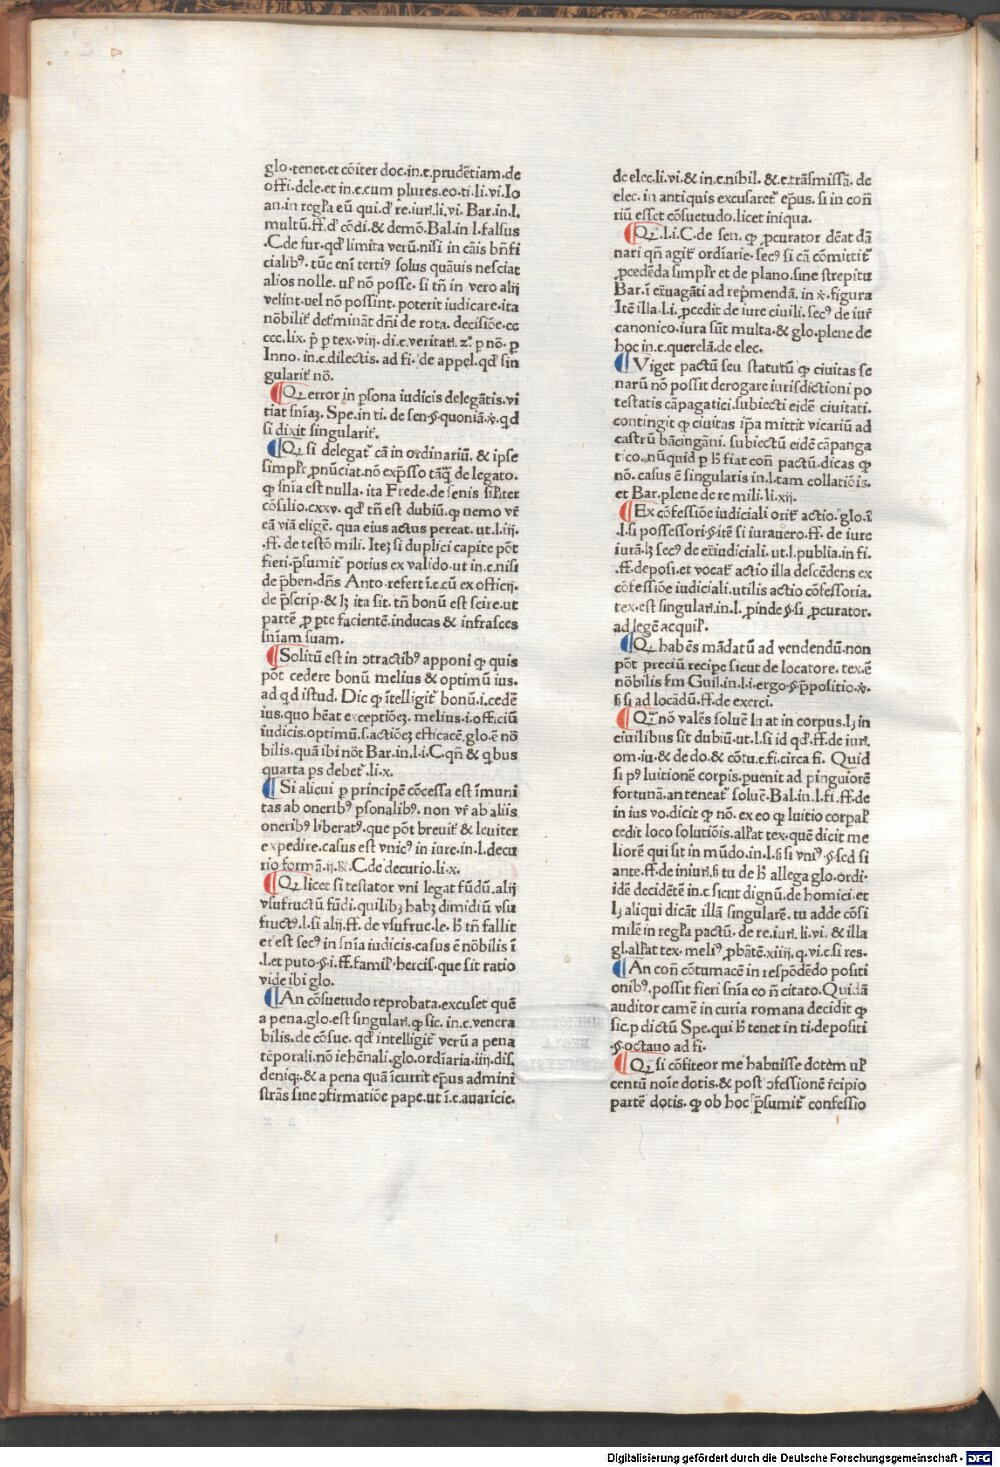 glo.tenet.et cōiter doc.in.c.prudētiam.de
offi.dele.et in.c.cum plures.eo.ti.li.vi.Io
an.in regľa eū qui.đ re.iurꝭ.li.vi. Bar.in.l.
multū.ff.đ cōdi.& demō.Bal.in l.falsus
.C.de fur.qđ limita verū.nisi in cāis bn̄fi
cialibꝰ. tūc eni tertiꝰ solus quāuis nesciat
alios nolle. uľ nō posse. si tn̄ in vero alij
velint.uel nō possint. poterit iudicare.ita
nōbilit̄ det̄minat dn̄i de rota. decisiōe.cc
ccc.lix. p̄ ꝑ tex.viij. di.c.veritati. ꝫ.º ꝑ nō. ꝑ
Inno. in.c.dilectis. ad fi. de appel.qđ sin
gularit̄ nō.
¶ Qꝫ error in ꝑsona iudicis delegātis.vi
tiat sn̄iaꝫ. Spe.in ti. de sen.§.quoniā.ꝟ.qđ
si dixit singularit̄.
¶ Qꝫ si delegat̄ cā in ordinariū. & ipse
simpľr ꝓnūciat.nō exp̄sso tāꝗ̄ de legato.
ꝙ sn̄ia est nulla. ita Frede.de senis siľiter
cōsilio.cxxv. qđ tn̄ est dubiū.ꝙ nemo vr̄
eā viā eligē. qua eius actus pereat. ut.l.iij.
.ff. de testō mili. Iteꝫ si duplici capite pōt
fieri.p̄sumit̄ potius ex valido.ut in.c.nisi
de p̄ben.dn̄s Anto.refert ī.c.cū ex officij.
de p̄scrip.& lꝫ ita sit. tn̄ bonū est scire.ut
partē ꝓ ꝑte facientē.inducas & infrasces
sn̄iam suam.
¶ Solitū est in ↄtractibꝰ apponi ꝙ quis
pōt cedere bonū melius & optimū ius.
ad qđ istud. Dic ꝙ ītelligit̄ bonū.i.cedē
ius.quo hēat exceptiōeꝫ. melius.i.officiū
iudicis.optimū.s.actiōeꝫ efficacē.glo.ē nō
bilis.quā ibi nōt Bar.in.l.i.C.qn̄ & qbus
quarta ps debet̄.li.x.
¶ Si alicui ꝑ principē cōcessa est īmuni
tas ab oneribꝰ ꝑsonalibꝰ. non vr̄ ab aliis
oneribꝰ liberatꝰ.que pōt breuit̄ & leuiter
expedire.casus est vnicꝰ in iure.in.l.decu
rio formā.ij.R̄.C.de decurio.li.x.
¶ Qꝫ licet si testator vni legat fūdū.alij
vsufructū fūdi.quilibꝫ habꝫ dimidiū vsu
fructꝰ.l.si alij.ff. de vsufruc.le. hꝰ tn̄ fallit
et est secꝰ in sn̄ia iudicis.casus ē nōbilis ī
.l.et puto.§.i.ff.famiľ.hercis.que sit ratio
vide ibi glo.
¶ An cōsuetudo reprobata.excuset quē
a pena.glo.est singulari.ꝙ sic. in.c.venera
bilis.de cōsue. qđ intelligit̄ verū a pena
tēporali.nō iehēnali.glo.ordīaria.iiij.dis.
deniqꝫ.& a pena quā īcurrit ep̄us admini
strās sine ↄfirmatiōe pape.ut ī.c.auaricie.
de elec.li.vi.& in.c.nihil. &.c.trāsmissā. de
elec. in antiquis excusaret̄ ep̄us. si in con̄
riū esset cōsuetudo.licet iniqua.
¶ Qꝫ.l.i.C.de sen. ꝙ ꝓcurator dēat dā
nari qn̄ agit̄ ordīarie.secꝰ si cā cōmittit̄
ꝓcedēda simpľr et de plano.sine strepitu
Bar.ī ex̄uagāti ad rep̄mendā. in ꝟ.figura
Itē illa.l.i.ꝓcedit de iure ciuili.secꝰ de iur̄
canonico.iura sūt multa.& glo.plene de
hoc in.c.querelā.de elec.
¶ Viget pactū seu statutū ꝙ ciuitas se
narū nō possit derogare iurisdictioni po
testatis cāpagatici.subiecti eidē ciuitati.
contingit ꝙ ciuitas ip̄a mittit vicariū ad
castrū bācingāni. subiectū eidē cāpanga
tico.nūquid ꝑ hꝰ fiat con̄ pactū.dicas ꝙ
nō. casus ē singularis in.l.tam collatiōis.
et Bar.plene de re mili.li.xij.
¶ Ex cōfessiōe iudiciali orit̄ actio.glo.ī
.l.si possessori.§.itē si iurauero.ff. de iure
iurā.lꝫ secꝰ de ex̄iudiciali.ut.l.publia.in fi.
.ff.deposi.et vocat̄ actio illa descēdens ex
cōfessiōe iudiciali.utilis actio cōfessoria.
tex.est singulari.in.l.ꝓinde.§.si ꝓcurator.
ad legē acquiľ.
¶ Qꝫ habēs mādatū ad vendendū.non
pōt preciū recipe sicut de locatore. tex.ē
nōbilis fm Guil.in.l.i.ergo.§.p̄positio.ꝟ.
ꝬSi ad locādū.ff.de exerci.
¶ Qꝫ nō valēs soluē luat in corpus.lꝫ in
ciuilibus sit dubiū.ut.l.si id qđ.ff.de iuri.
om.iu.& de do.& cōtu.c.fi.circa fi. Quid
si pꝰ luitionē corpis.ꝑuenit ad pinguiorē
fortunā.an teneat̄ soluē.Bal.in.l.fi.ff.de
in ius vo.dicit ꝙ nō. ex eo ꝙ luitio corpaľ
cedit loco solutiōis.alľat tex.quē dicit me
liorē qui sit in mūdo.in.l.ꝬSi vniꝰ.§.sed si
ante.ff.de iniuri.ꝬTu de hꝰ allega glo.ordi.
idē decidētē in.c.sicut dignū.de homici.et
lꝫ aliqui dicāt illā singularē. tu adde cōsi
milē in regľa pactū. de re.iuri. li.vi. & illa
gl.alľat tex. meliꝰ ꝓbātē.xiiij.q.vi.c.si res.
¶ An con̄ cōtumacē in respōdēdo positi
onibꝰ.possit fieri sn̄ia eo n̄ citato. Quidā
auditor camē in curia romana decidit ꝙ
sic.ꝑ dictū Spe.qui hꝰ tenet in ti.de positi
.§.octauo ad fi.
¶ Qꝫ si cōfiteor me habuisse dotēm uľ
centū noīe dotis.& post ↄfessionē r̄cipio
partē dotis. ꝙ ob hoc p̄sumit̄ confessio
Digitalisierung gefördert durch die Deutsche Forschungsgemeinschaft - DFG